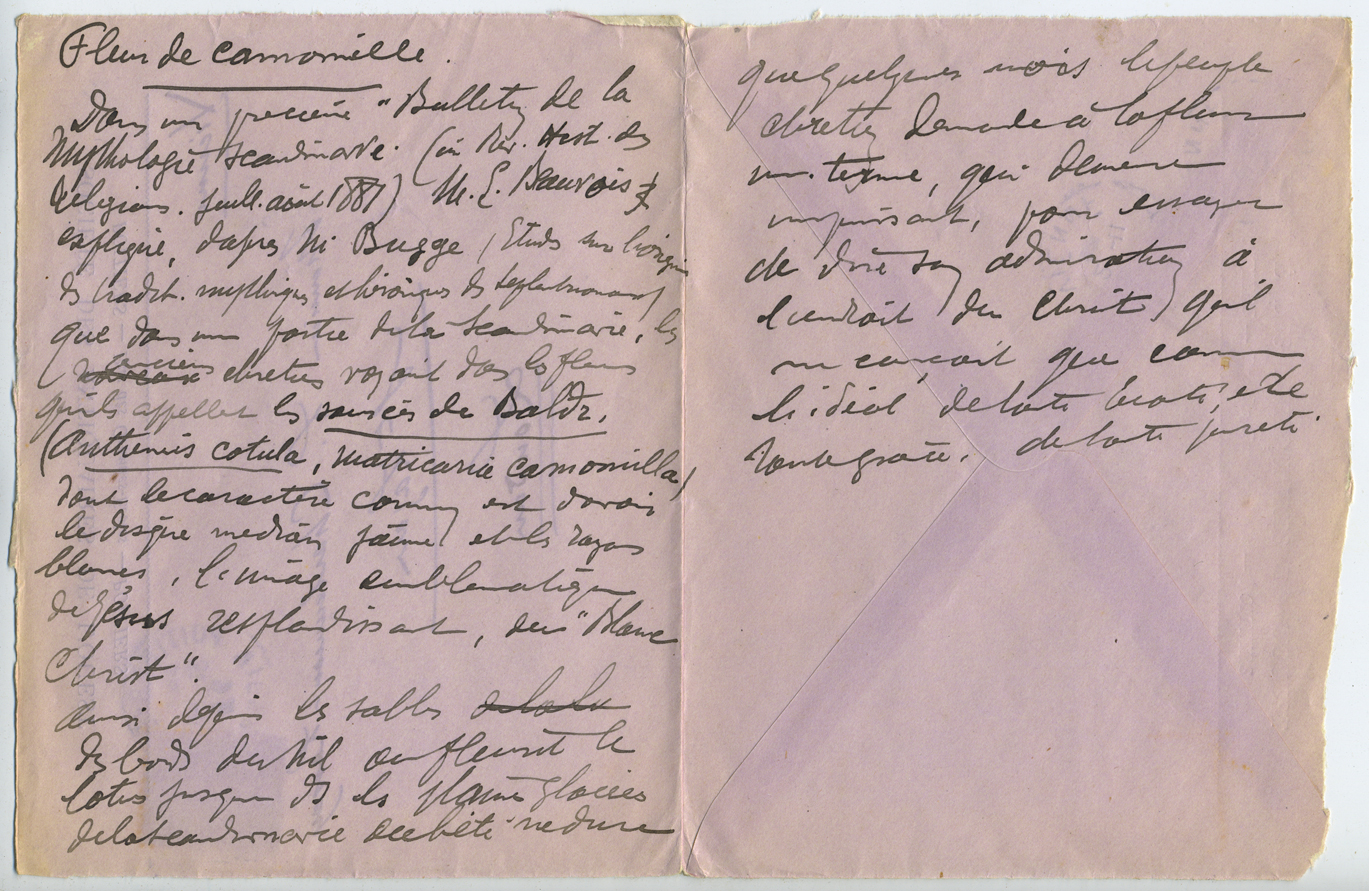 Fleur de camomille.
Dans un precieux "Bulletin de la
Mythologie Scandinave. (in Rev. Hist. des
Religions. juill. août 1881) M. E. Beauvois
explique, d'après M. Bugge (Etudes sur l'origine
des tradit. mythiques et héroïques des septentrionaux)
que dans une partie de la Scandinavie, les
anciens chretiens voyaient dans les fleurs
qu'ils appellent les sourcils de Baldr,
(Anthemis cotula, matricaria camomilla)
dont le caractère commun est d'avoir
le disque median jaune et les rayons
blancs, l'image emblematique
de Jésus resplendissant, du "Blanc
Christ".
Ainsi depuis les sables de la
des bords du Nil ou fleurit le
lotus jusque ds les plaines glacées
de la Scandinavie ou l'été ne dure
que quelques mois le peuple
chretien demande à la fleur
un terme, qui demeure
impuissant, pour essayer
de dire son admiration à
l'endroit du Christ qu'il
ne conçoit que comme
l'idéal de toute beauté, et de
toute grâce. de toute pureté.